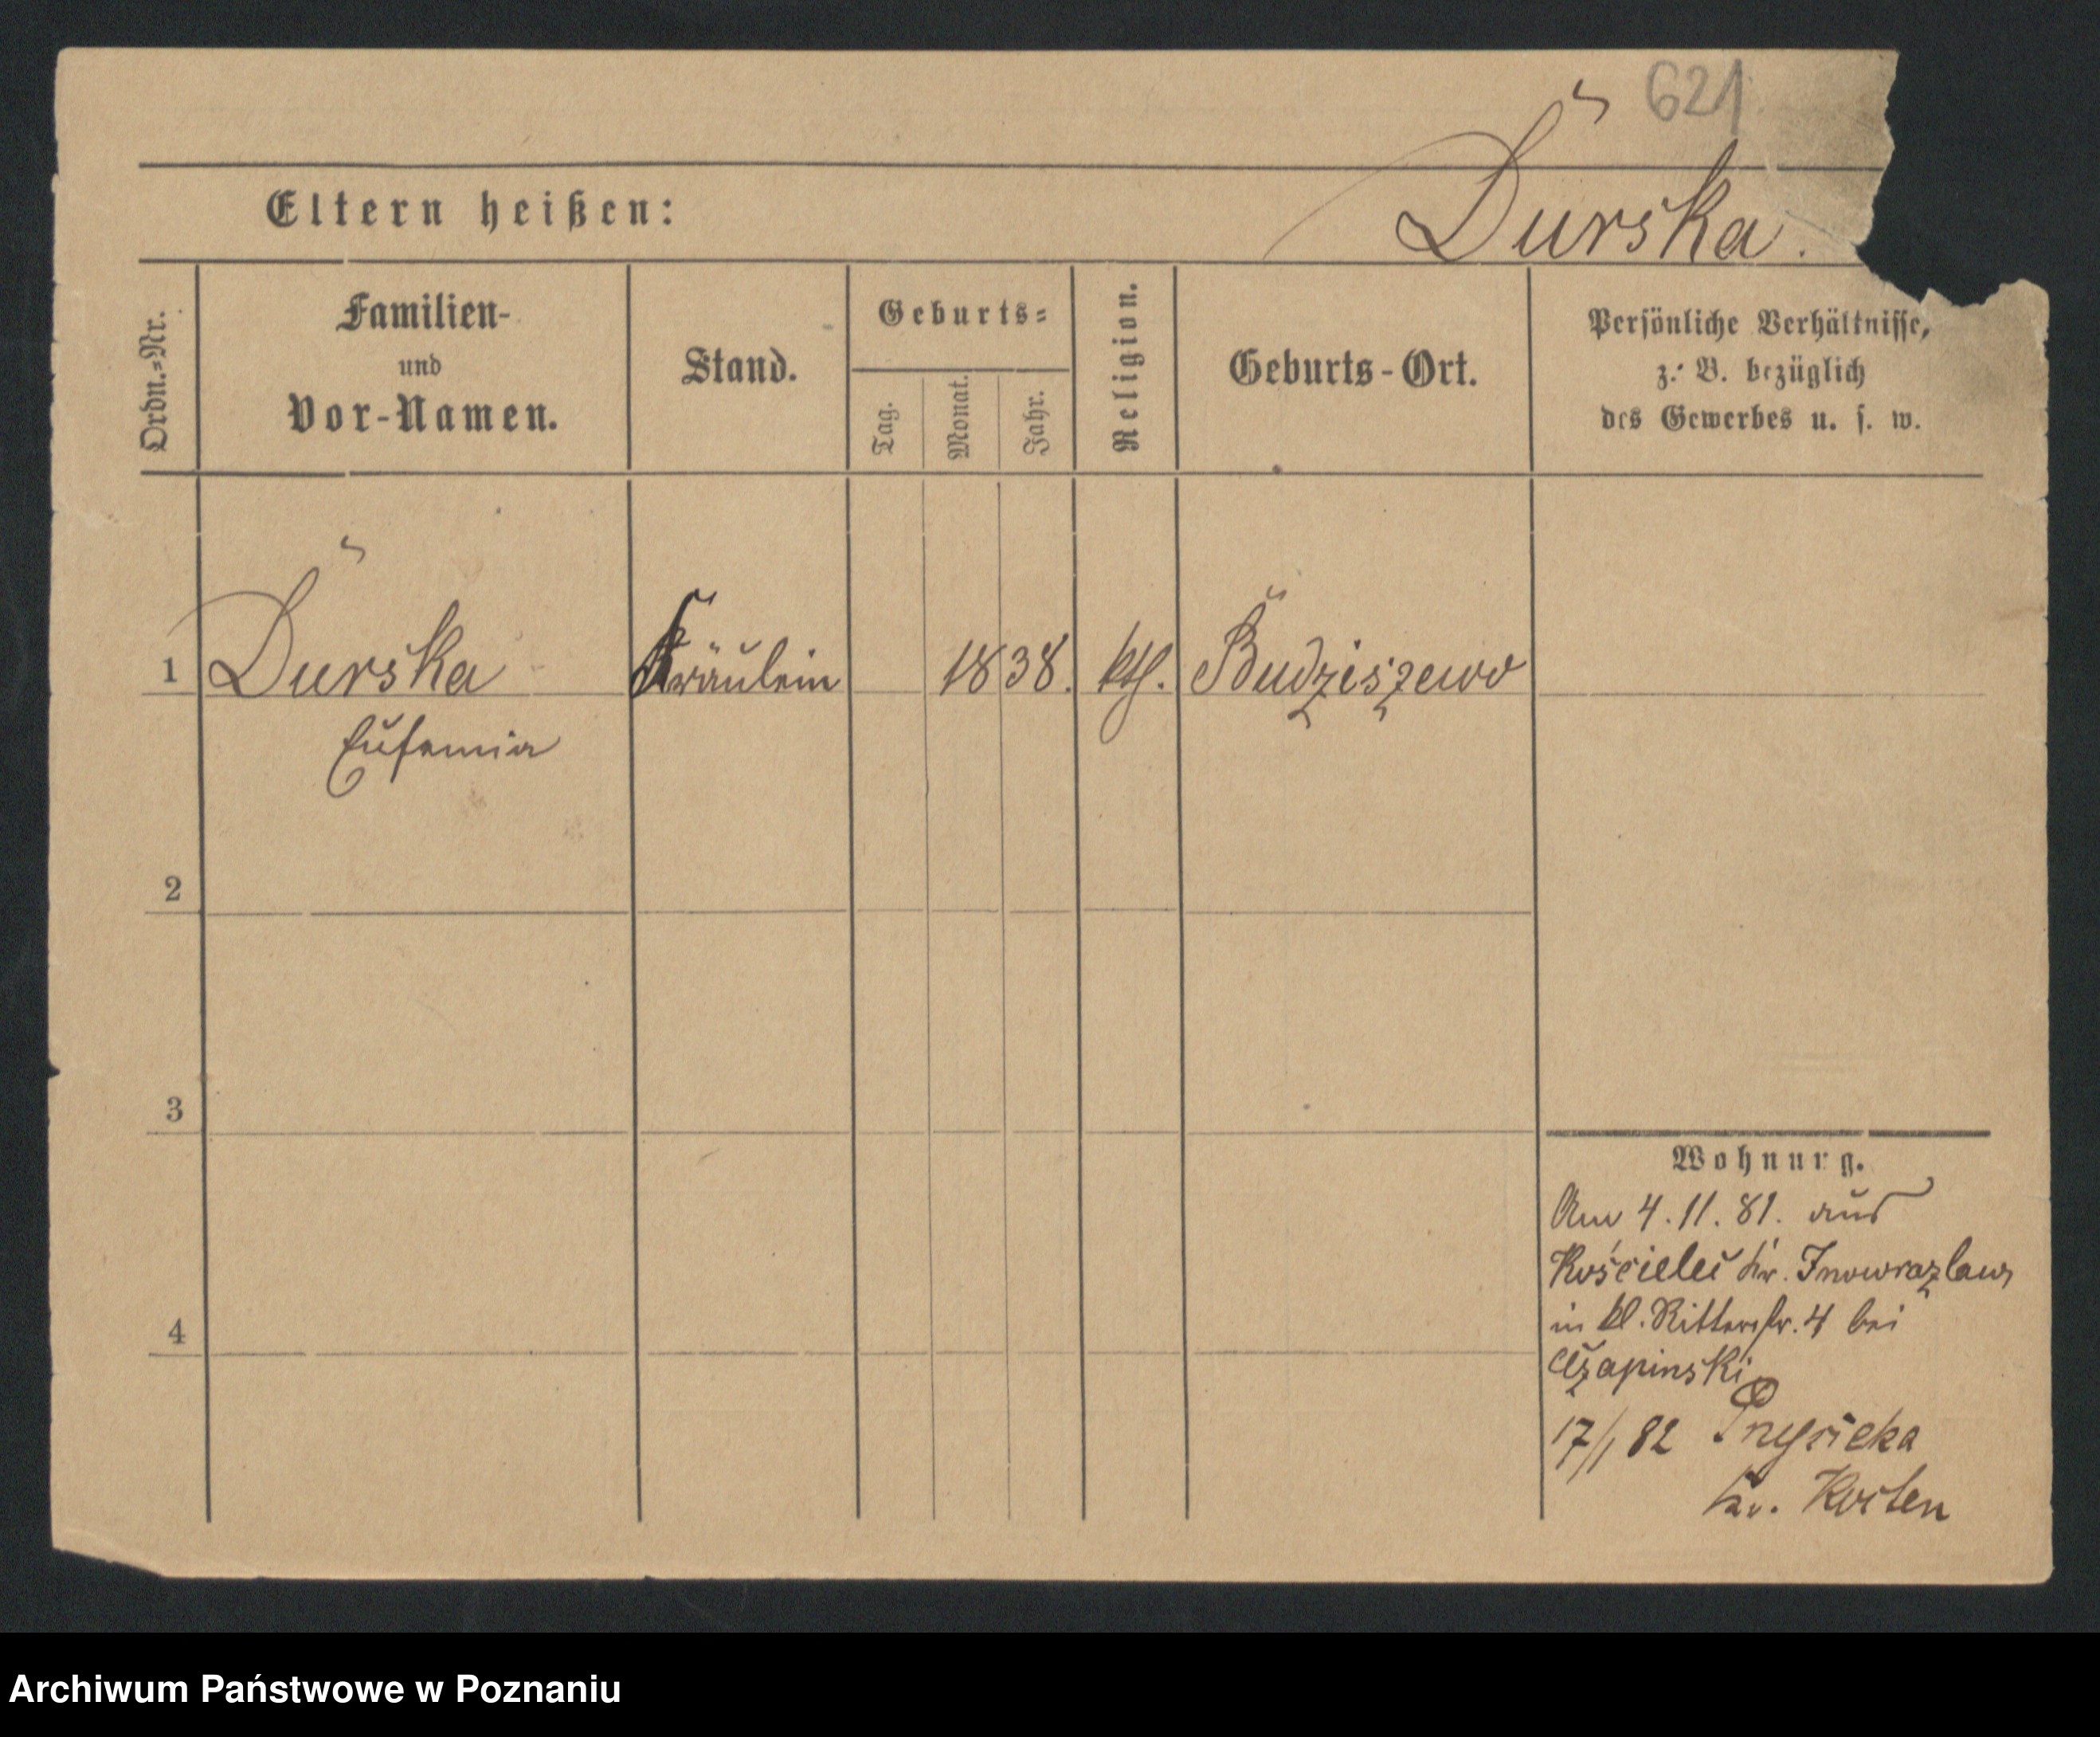 621
Durska.
Eltern heißen:
Ordn.=Nr.
Familien-
und
Vor-Namen.
Stand.
Geburts=
Tag.
Monat.
Jahr.
Religion.
Geburts-Ort.
Persönliche Verhältnisse,
z. B. bezüglich
des Gewerbes u. s. w.
1 Durska Fräulein 1838. kth. Budziszewo
Eufemia
2
3
4
Wohnung.
Am 4.11.81. aus
Kościelec Kr. Inowrazlaw
in kl. Ritterstr. 4 bei
Czapinski
17/1 82
Kr. Kosten
Archiwum Państwowe w Poznaniu